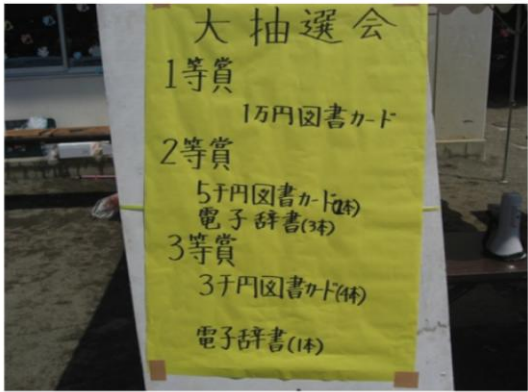 大抽選会
1等賞
1万円図書カード
2等賞
5千円図書カード(2本)
電子辞書(3本)
3等賞
3千円図書カード(4本)
電子辞書(1本)